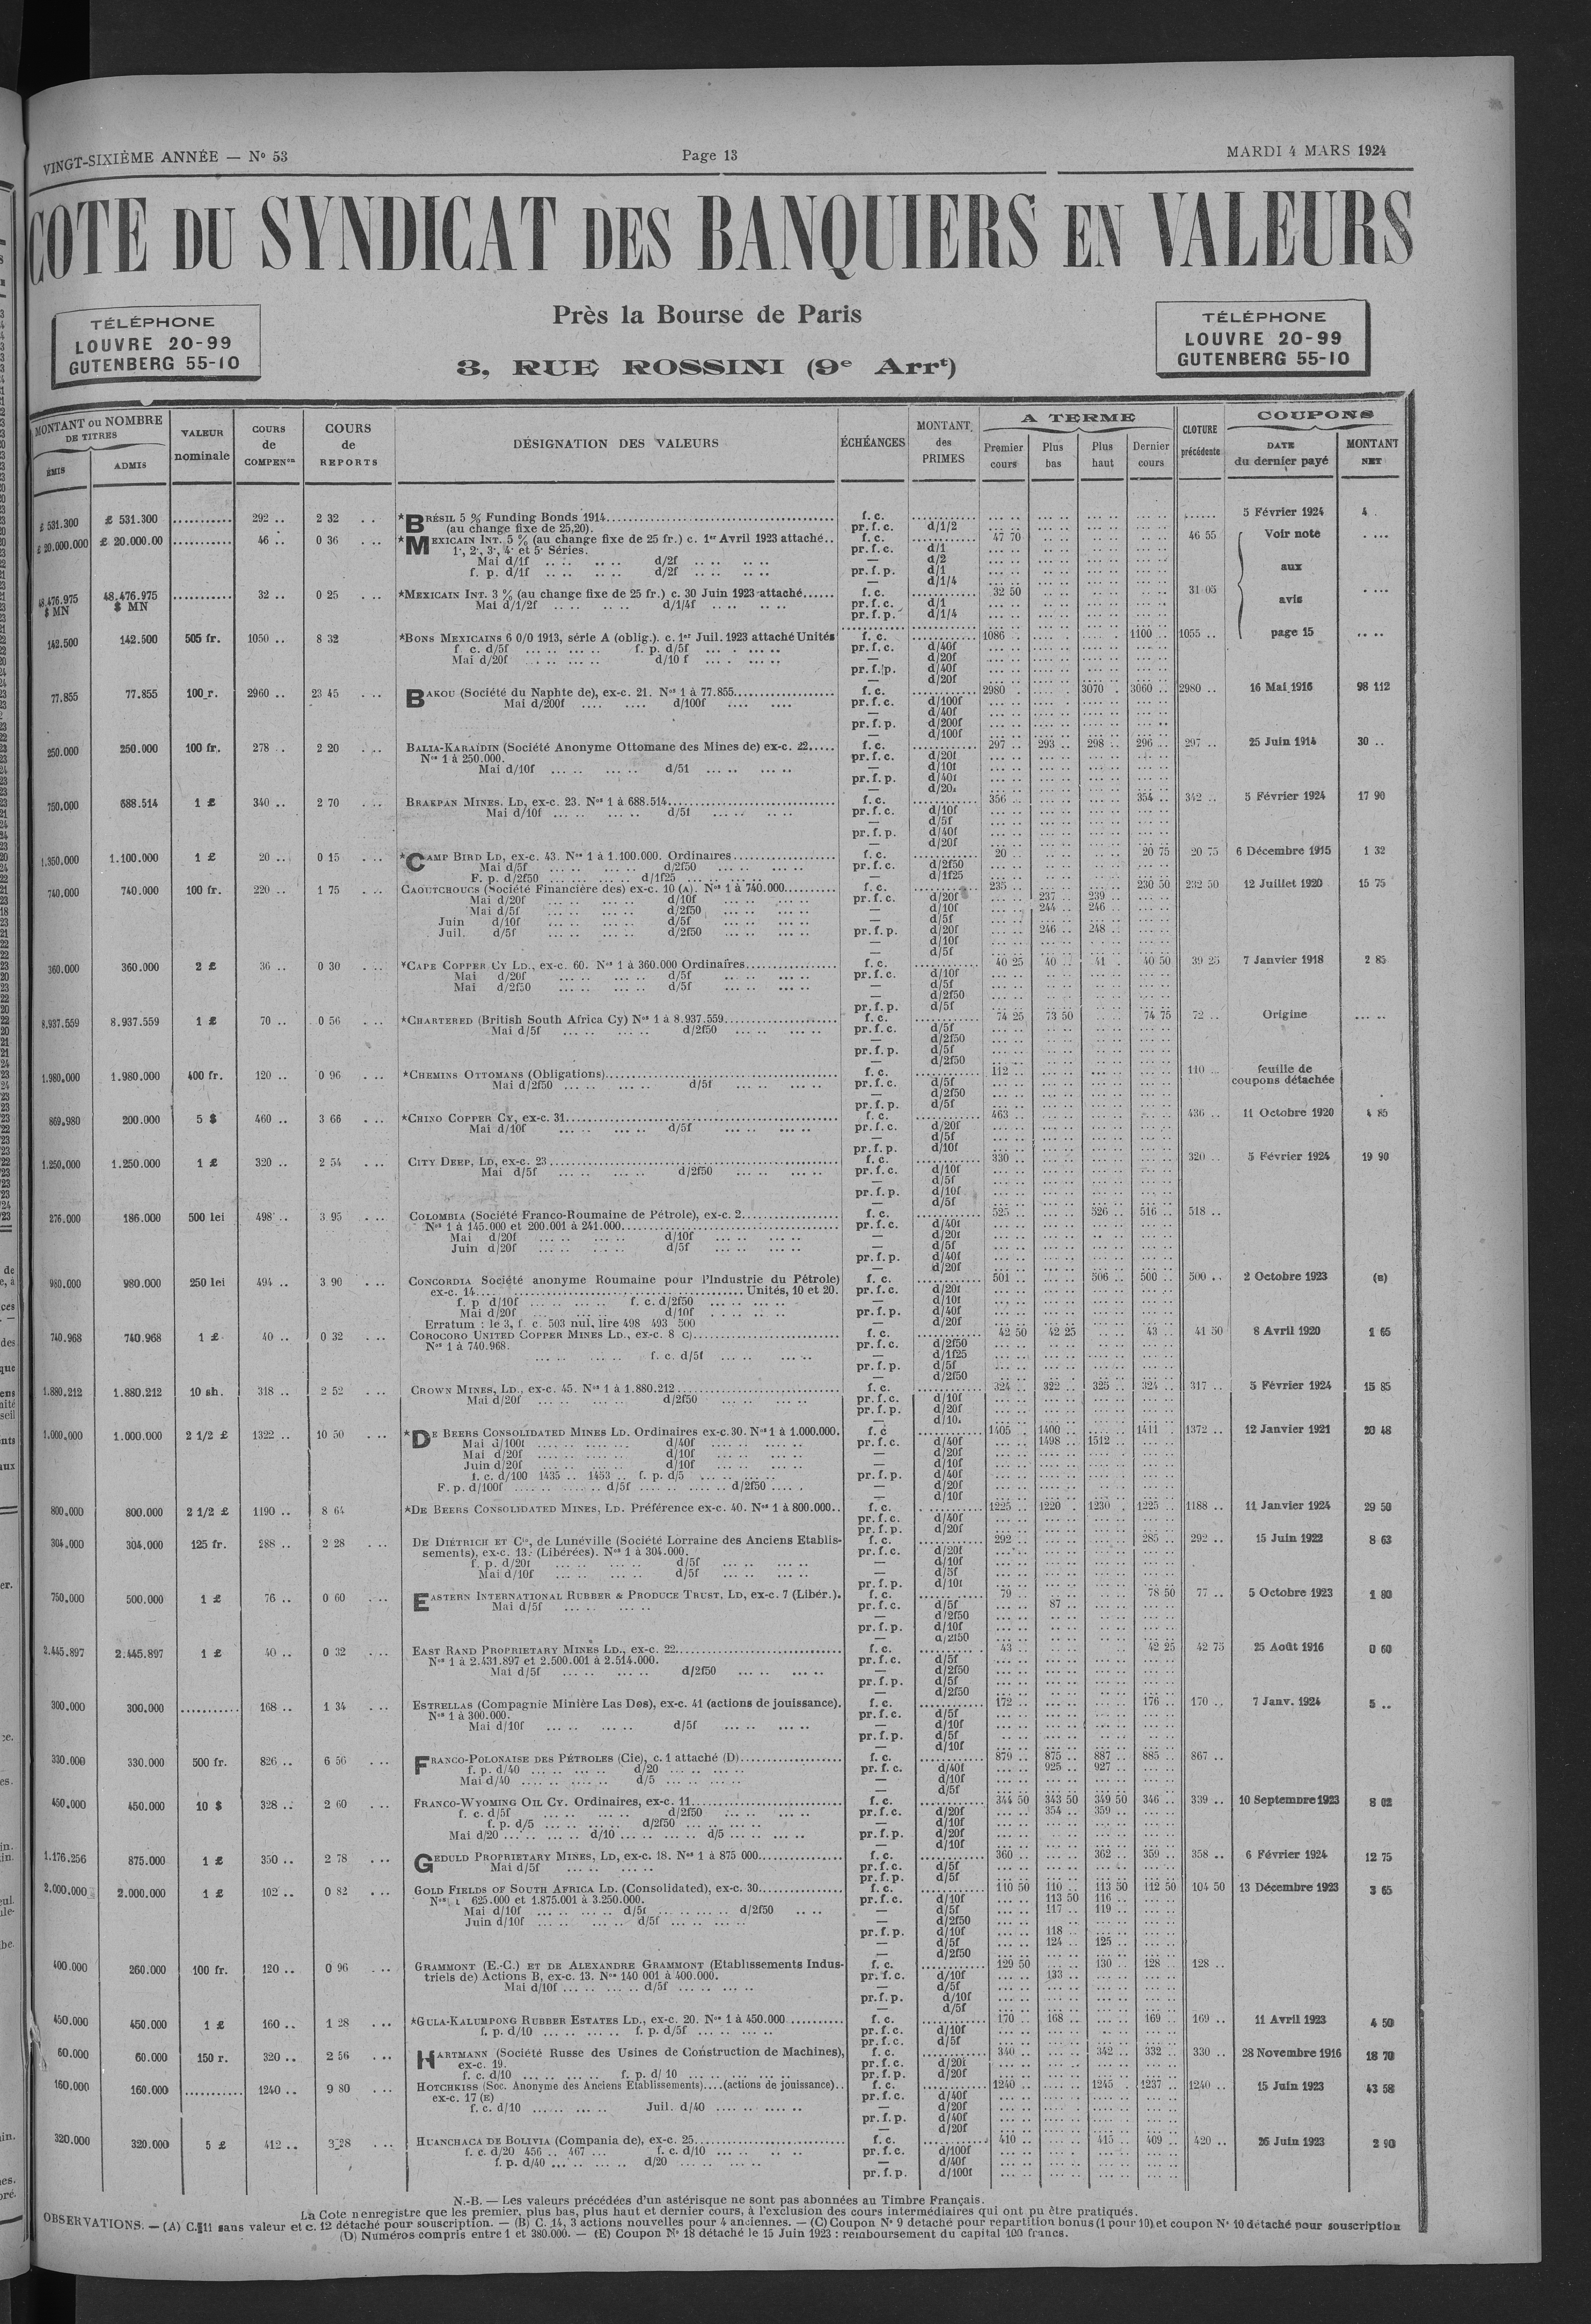 VINGT-SIXIÈME ANNÉE — No 53 Page 13 MARDI 4 MARS 1924
COTE DU SYNDICAT DES BANQUIERS EN VALEURS
Près la Bourse de Paris
3, RUE ROSSINI (9e Arrt)
TÉLÉPHONE
LOUVRE 20-99
GUTENBERG 55-10
TÉLÉPHONE
LOUVRE 20-99
GUTENBERG 55-10
MONTANT ou NOMBRE DE TITRES
ÉMIS ADMIS
VALEUR nominale
COURS de COMPENon
COURS de REPORTS
DÉSIGNATION DES VALEURS
ÉCHÉANCES
MONTANT des PRIMES
A TERME
Premier cours Plus bas Plus haut Dernier cours
CLOTURE précédente
COUPONS
DATE du dernier payé MONTANT NET
£ 531.300 £ 531.300 292 .. 2 32 *BRÉSIL 5 % Funding Bonds 1914 f. c. 5 Février 1924 4 .
(au change fixe de 25,20). pr. f. c. d/1/2
£ 20.000.000 £ 20.000.00 46 .. 0 36 *MEXICAIN INT. 5 % (au change fixe de 25 fr.) c. 1er Avril 1923 attaché.. f. c. 47 70 46 55 Voir note
1·, 2·, 3·, 4· et 5· Séries. pr. f. c. d/1
Mai d/1f d/2f — d/2
f. p. d/1f d/2f pr. f. p. d/1 aux
— d/1/4
48.476.975 $ MN 48.476.975 $ MN 32 .. 0 25 *MEXICAIN INT. 3 % (au change fixe de 25 fr.) c. 30 Juin 1923 attaché f. c. 32 50 31 05 avis
Mai d/1/2f d/1/4f pr. f. c. d/1
pr. f. p. d/1/4
142.500 142.500 505 fr. 1050 .. 8 32 *BONS MEXICAINS 6 0/0 1913, série A (oblig.). c. 1er Juil. 1923 attaché Unités f. c. 1086 1100 .. 1055 .. page 15
f c. d/5f f. p. d/5f pr. f. c. d/40f
Mai d/20f d/10 f — d/20f
pr. f. p. d/40f
— d/20f
77.855 77.855 100 r. 2960 .. 23 45 BAKOU (Société du Naphte de), ex-c. 21. Nos 1 à 77.855 f. c. 2980 3070 3060 .. 2980 .. 16 Mai 1916 98 112
Mai d/200f d/100f pr. f. c. d/100f
— d/40f
pr. f. p. d/200f
— d/100f
250.000 250.000 100 fr. 278 .. 2 20 BALIA-KARAÏDIN (Société Anonyme Ottomane des Mines de) ex-c. 22 f. c. 297 .. 293 .. 298 .. 296 .. 297 .. 25 Juin 1914 30 ..
Nos 1 à 250.000. pr. f. c. d/20f
Mai d/10f d/5f — d/10f
pr. f. p. d/40f
— d/20f
750.000 688.514 1 £ 340 .. 2 70 BRAKPAN MINES. LD, ex-c. 23. Nos 1 à 688.514 f. c. 356 354 .. 342 .. 5 Février 1924 17 90
Mai d/10f d/5f pr. f. c. d/10f
— d/5f
pr. f. p. d/40f
— d/20f
1.350.000 1.100.000 1 £ 20 .. 0 15 *CAMP BIRD LD, ex-c. 43. Nos 1 à 1.100.000. Ordinaires f. c. 20 20 75 20 75 6 Décembre 1915 1 32
Mai d/5f d/2f50 pr. f. c. d/2f50
F. p. d/2f50 d/1f25 — d/1f25
740.000 740.000 100 fr. 220 .. 1 75 CAOUTCHOUCS (Société Financière des) ex-c. 10 (A). Nos 1 à 740.000 f. c. 235 .. 230 50 232 50 12 Juillet 1920 15 75
Mai d/20f d/10f pr. f. c. d/20f 237 .. 239 ..
Mai d/5f d/2f50 — d/10f 244 .. 246 ..
Juin d/10f d/5f — d/5f
Juil. d/5f d/2f50 pr. f. p. d/20f 246 .. 248 ..
— d/10f
— d/5f
360.000 360.000 2 £ 36 .. 0 30 *CAPE COPPER CY LD., ex-c. 60. Nos 1 à 360.000 Ordinaires f. c. 40 25 40 .. 41 .. 40 50 39 25 7 Janvier 1918 2 85
Mai d/20f d/5f pr. f. c. d/10f
Mai d/2f50 d/5f — d/5f
— d/2f50
pr. f. p. d/5f
8.937.559 8.937.559 1 £ 70 .. 0 56 *CHARTERED (British South Africa Cy) Nos 1 à 8.937.559 f. c. 74 25 73 50 74 75 72 .. Origine
Mai d/5f d/2f50 pr. f. c. d/5f
— d/2f50
pr. f. p. d/5f
— d/2f50
1.980.000 1.980.000 400 fr. 120 .. 0 96 *CHEMINS OTTOMANS (Obligations) f. c. 112 .. 110 .. feuille de
Mai d/2f50 d/5f pr. f. c. d/5f coupons détachée
— d/2f50
pr. f. p. d/5f
869.980 200.000 5 $ 460 .. 3 66 *CHINO COPPER CY, ex-c. 31 f. c. 463 436 .. 11 Octobre 1920 4 85
Mai d/10f d/5f pr. f. c. d/20f
— d/5f
pr. f. p. d/10f
1.250.000 1.250.000 1 £ 320 .. 2 54 CITY DEEP, LD, ex-c. 23 f. c. 330 .. 320 .. 5 Février 1924 19 90
Mai d/5f d/2f50 pr. f. c. d/10f
— d/5f
pr. f. p. d/10f
— d/5f
276.000 186.000 500 lei 498 .. 3 95 COLOMBIA (Société Franco-Roumaine de Pétrole), ex-c. 2 f. c. 525 526 .. 516 .. 518 ..
Nos 1 à 145.000 et 200.001 à 241.000 pr. f. c. d/40f
Mai d/20f d/10f — d/20f
Juin d/20f d/5f — d/5f
pr. f. p. d/40f
— d/20f
980.000 980.000 250 lei 494 .. 3 90 CONCORDIA Société anonyme Roumaine pour l'Industrie du Pétrole) f. c. 501 .. 506 .. 500 .. 500 .. 2 Octobre 1923 (B)
ex-c. 14 Unités, 10 et 20. pr. f. c. d/20f
f. p d/10f f. c. d/2f50 — d/10f
Mai d/20f d/10f pr. f. p. d/40f
Erratum : le 3, f. c. 503 nul, lire 498 493 500 — d/20f
740.968 740.968 1 £ 40 .. 0 32 COROCORO UNITED COPPER MINES LD., ex-c. 8 C) f. c. 42 50 42 25 43 .. 41 50 8 Avril 1920 1 65
Nos 1 à 740.968. pr. f. c. d/2f50
f. c. d/5f — d/1f25
pr. f. p. d/5f
— d/2f50
1.880.212 1.880.212 10 sh. 318 .. 2 52 CROWN MINES, LD., ex-c. 45. Nos 1 à 1.880.212 f. c. 324 .. 322 .. 325 .. 324 .. 317 .. 5 Février 1924 15 85
Mai d/20f d/2f50 pr. f. c. d/10f
pr. f. p. d/20f
— d/10.
1.000.000 1.000.000 2 1/2 £ 1322 .. 10 50 *DE BEERS CONSOLIDATED MINES LD. Ordinaires ex-c. 30. Nos 1 à 1.000.000. f. c 1405 1400 .. 1411 1372 .. 12 Janvier 1921 20 48
Mai d/100f d/40f pr. f. c. d/40f 1498 .. 1512 ..
Mai d/20f d/10f — d/20f
Juin d/20f d/10f — d/10f
f. c. d/100 1435 .. 1453 .. f. p. d/5 pr. f. p. d/40f
F. p. d/100f d/5f d/2f50 — d/20f
— d/10f
800.000 800.000 2 1/2 £ 1190 .. 8 64 *DE BEERS CONSOLIDATED MINES, LD. Préférence ex-c. 40. Nos 1 à 800.000.. f. c. 1225 .. 1220 1230 1225 .. 1188 .. 11 Janvier 1924 29 50
pr. f. c. d/40f
pr. f. p. d/20f
304.000 304.000 125 fr. 288 .. 2 28 DE DIÉTRICH ET Cie, de Lunéville (Société Lorraine des Anciens Etablis- f. c. 292 .. 285 .. 292 .. 15 Juin 1922 8 63
sements), ex-c. 13. (Libérées). Nos 1 à 304.000. pr. f. c. d/20f
f. p. d/20f d/5f — d/10f
Mai d/10f d/5f — d/5f
pr. f. p. d/10f
750.000 500.000 1 £ 76 .. 0 60 EASTERN INTERNATIONAL RUBBER & PRODUCE TRUST, LD, ex-c. 7 (Libér.). f. c. 79 78 50 77 .. 5 Octobre 1923 1 80
Mai d/5f pr. f. c. d/5f 87 ..
— d/2f50
pr. f. p. d/10f
— d/2f50
2.445.897 2.445.897 1 £ 40 .. 0 32 EAST RAND PROPRIETARY MINES LD., ex-c. 22 f. c. 43 42 25 42 75 25 Août 1916 0 60
Nos 1 à 2.431.897 et 2.500.001 à 2.514.000. pr. f. c. d/5f
Mai d/5f d/2f50 — d/2f50
pr. f. p. d/5f
— d/2f50
300.000 300.000 168 .. 1 34 ESTRELLAS (Compagnie Minière Las Dos), ex-c. 41 (actions de jouissance). f. c. 172 .. 176 .. 170 .. 7 Janv. 1924 5 ..
Nos 1 à 300.000. pr. f. c. d/5f
Mai d/10f d/5f — d/10f
pr. f. p. d/5f
— d/10f
330.000 330.000 500 fr. 826 .. 6 56 FRANCO-POLONAISE DES PÉTROLES (Cie), c. 1 attaché (D) f. c. 879 875 .. 887 .. 885 .. 867 ..
f. p. d/40 d/20 pr. f. c. d/40f 925 .. 927 ..
Mai d/40 d/5 — d/10f
— d/5f
450.000 450.000 10 $ 328 .. 2 60 FRANCO-WYOMING OIL CY. Ordinaires, ex-c. 11 f. c. 344 50 343 50 349 50 346 .. 339 .. 10 Septembre 1923 8 02
f. c. d/5f d/2f50 pr. f. c. d/20f 354 .. 359 ..
f. p. d/5 d/2f50 — d/10f
Mai d/20 d/10 d/5 pr. f. p. d/20f
— d/10f
1.176.256 875.000 1 £ 350 .. 2 78 GEDULD PROPRIETARY MINES, LD, ex-c. 18. Nos 1 à 875 000 f. c. 360 .. 362 .. 359 .. 358 .. 6 Février 1924 12 75
Mai d/5f pr. f. c. d/5f
pr. f. p. d/5f
2.000.000 2.000.000 1 £ 102 .. 0 82 GOLD FIELDS OF SOUTH AFRICA LD. (Consolidated), ex-c. 30 f. c. 110 50 110 .. 113 50 112 50 104 50 13 Décembre 1923 3 65
Nos 1 625.000 et 1.875.001 à 3.250.000. pr. f. c. d/10f 113 50 116 ..
Mai d/10f d/5f d/2f50 — d/5f 117 .. 119 ..
Juin d/10f d/5f — d/2f50
pr. f. p. d/10f 118 ..
— d/5f 124 .. 125 ..
— d/2f50
400.000 260.000 100 fr. 120 .. 0 96 GRAMMONT (E.-C.) ET DE ALEXANDRE GRAMMONT (Etablissements Indus- f. c. 129 50 130 .. 128 .. 128 ..
triels de) Actions B, ex-c. 13. Nos 140 001 à 400.000. pr. f. c. d/10f 133 ..
Mai d/10f d/5f — d/5f
pr. f. p. d/10f
— d/5f
450.000 450.000 1 £ 160 .. 1 28 *GULA-KALUMPONG RUBBER ESTATES LD., ex-c. 20. Nos 1 à 450.000 f. c. 170 .. 168 .. 169 .. 169 .. 11 Avril 1923 4 50
f. p. d/10 f. p. d/5f pr. f. c. d/10f
pr. f. c. d/5f
60.000 60.000 150 r. 320 .. 2 56 HARTMANN (Société Russe des Usines de Construction de Machines), f. c. 340 342 .. 332 .. 330 .. 28 Novembre 1916 18 70
ex-c. 19. pr. f. c. d/20f
f. c. d/10 f. p. d/ 10 pr. f. p. d/20f
160.000 160.000 1240 .. 9 80 HOTCHKISS (Soc. Anonyme des Anciens Etablissements)....(actions de jouissance).. f. c. 1240 1245 1237 1240 .. 15 Juin 1923 43 58
ex-c. 17 (E) pr. f. c. d/40f
f. c. d/10 Juil. d/40 — d/20f
pr. f. p. d/40f
— d/20f
320.000 320.000 5 £ 412 .. 3 28 HUANCHACA DE BOLIVIA (Compania de), ex-c. 25 f. c. 410 .. 415 .. 409 .. 420 .. 26 Juin 1923 2 90
f. c. d/20 456 .. 467 ... f. c. d/10 pr. f. c. d/100f
f. p. d/40 d/20 — d/40f
pr. f. p. d/100f
N.-B. — Les valeurs précédées d'un astérisque ne sont pas abonnées au Timbre Français.
La Cote n enregistre que les premier, plus bas, plus haut et dernier cours, à l'exclusion des cours intermédiaires qui ont pu être pratiqués.
OBSERVATIONS. — (A) C. 11 sans valeur et c. 12 détaché pour souscription. — (B) C. 14, 3 actions nouvelles pour 4 anciennes. — (C) Coupon No 9 detaché pour repartition bonus (1 pour 10) et coupon No 10 détaché pour souscription
(D) Numéros compris entre 1 et 380.000. — (E) Coupon No 18 détaché le 15 Juin 1923 : remboursement du capital 100 francs.